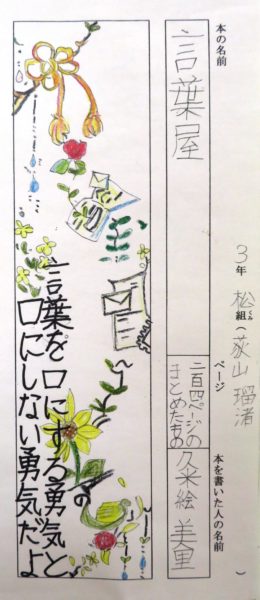 本の名前
言葉屋
3年 松組(荻山 瑠渚)
くみ
ページ
二百四ページの
まとめたもの
本を書いた人の名前
久米絵美里
言葉を口にする勇気と
口にしない勇気だよ